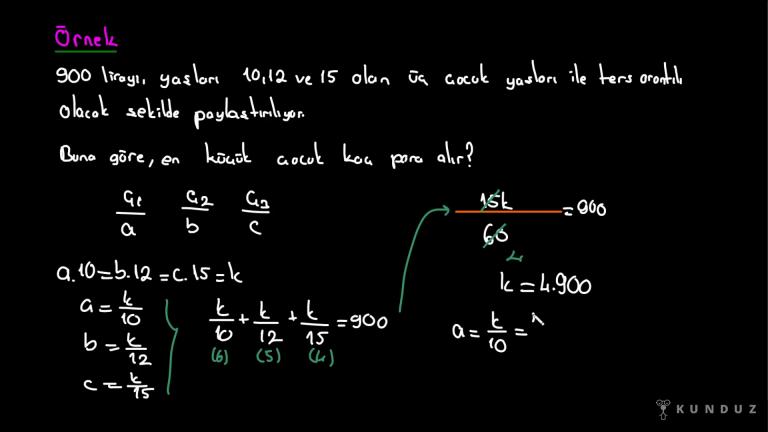 Örnek
900 lirayı, yaşları 10,12 ve 15 olan üç çocuk yaşları ile ters orantılı
olacak şekilde paylaştırılıyor.
Buna göre, en küçük çocuk kaç para alır?
Ç1/a Ç2/b Ç3/c
a.10=b.12=c.15=k
a=k/10
b=k/12
c=k/15
k/10+k/12+k/15=900
(6) (5) (4)
15k/60=900
4
k=4.900
a=k/10=
KUNDUZ